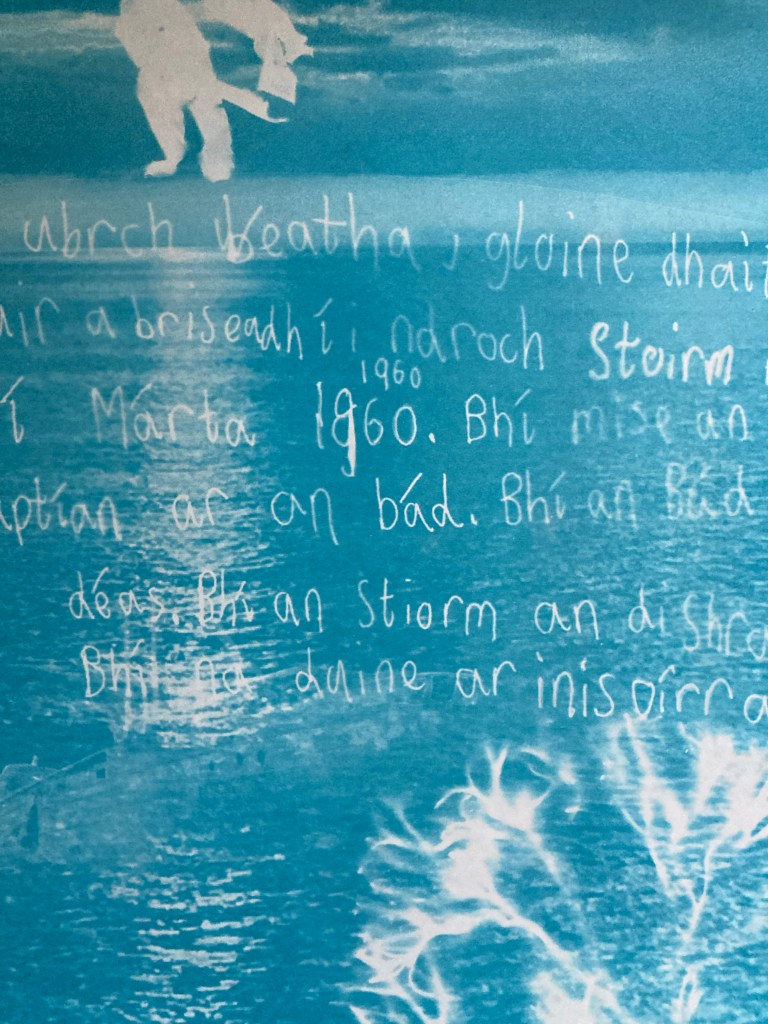 ubrch bheatha, gloine dhait
air a briseadh í i ndroch Stoirm
í Márta 1960. Bhí mise an
1960
aptían ar an bád. Bhí an Bád
déas. Bhí an Stiorm an di Shra
na duine ar inis oírr a